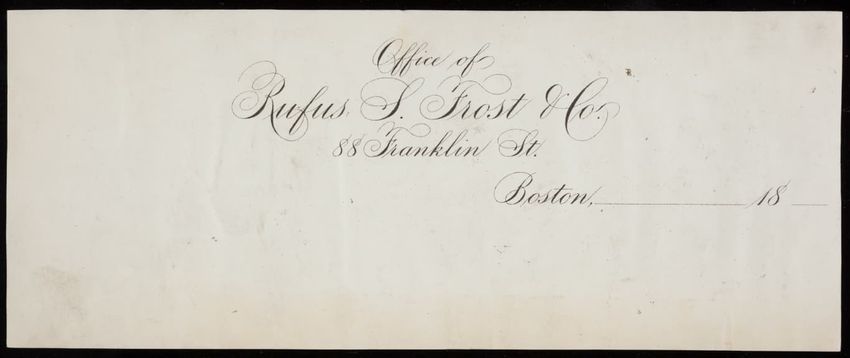 Office of
Rufus S. Frost & Co.
88 Franklin St.
Boston, 18